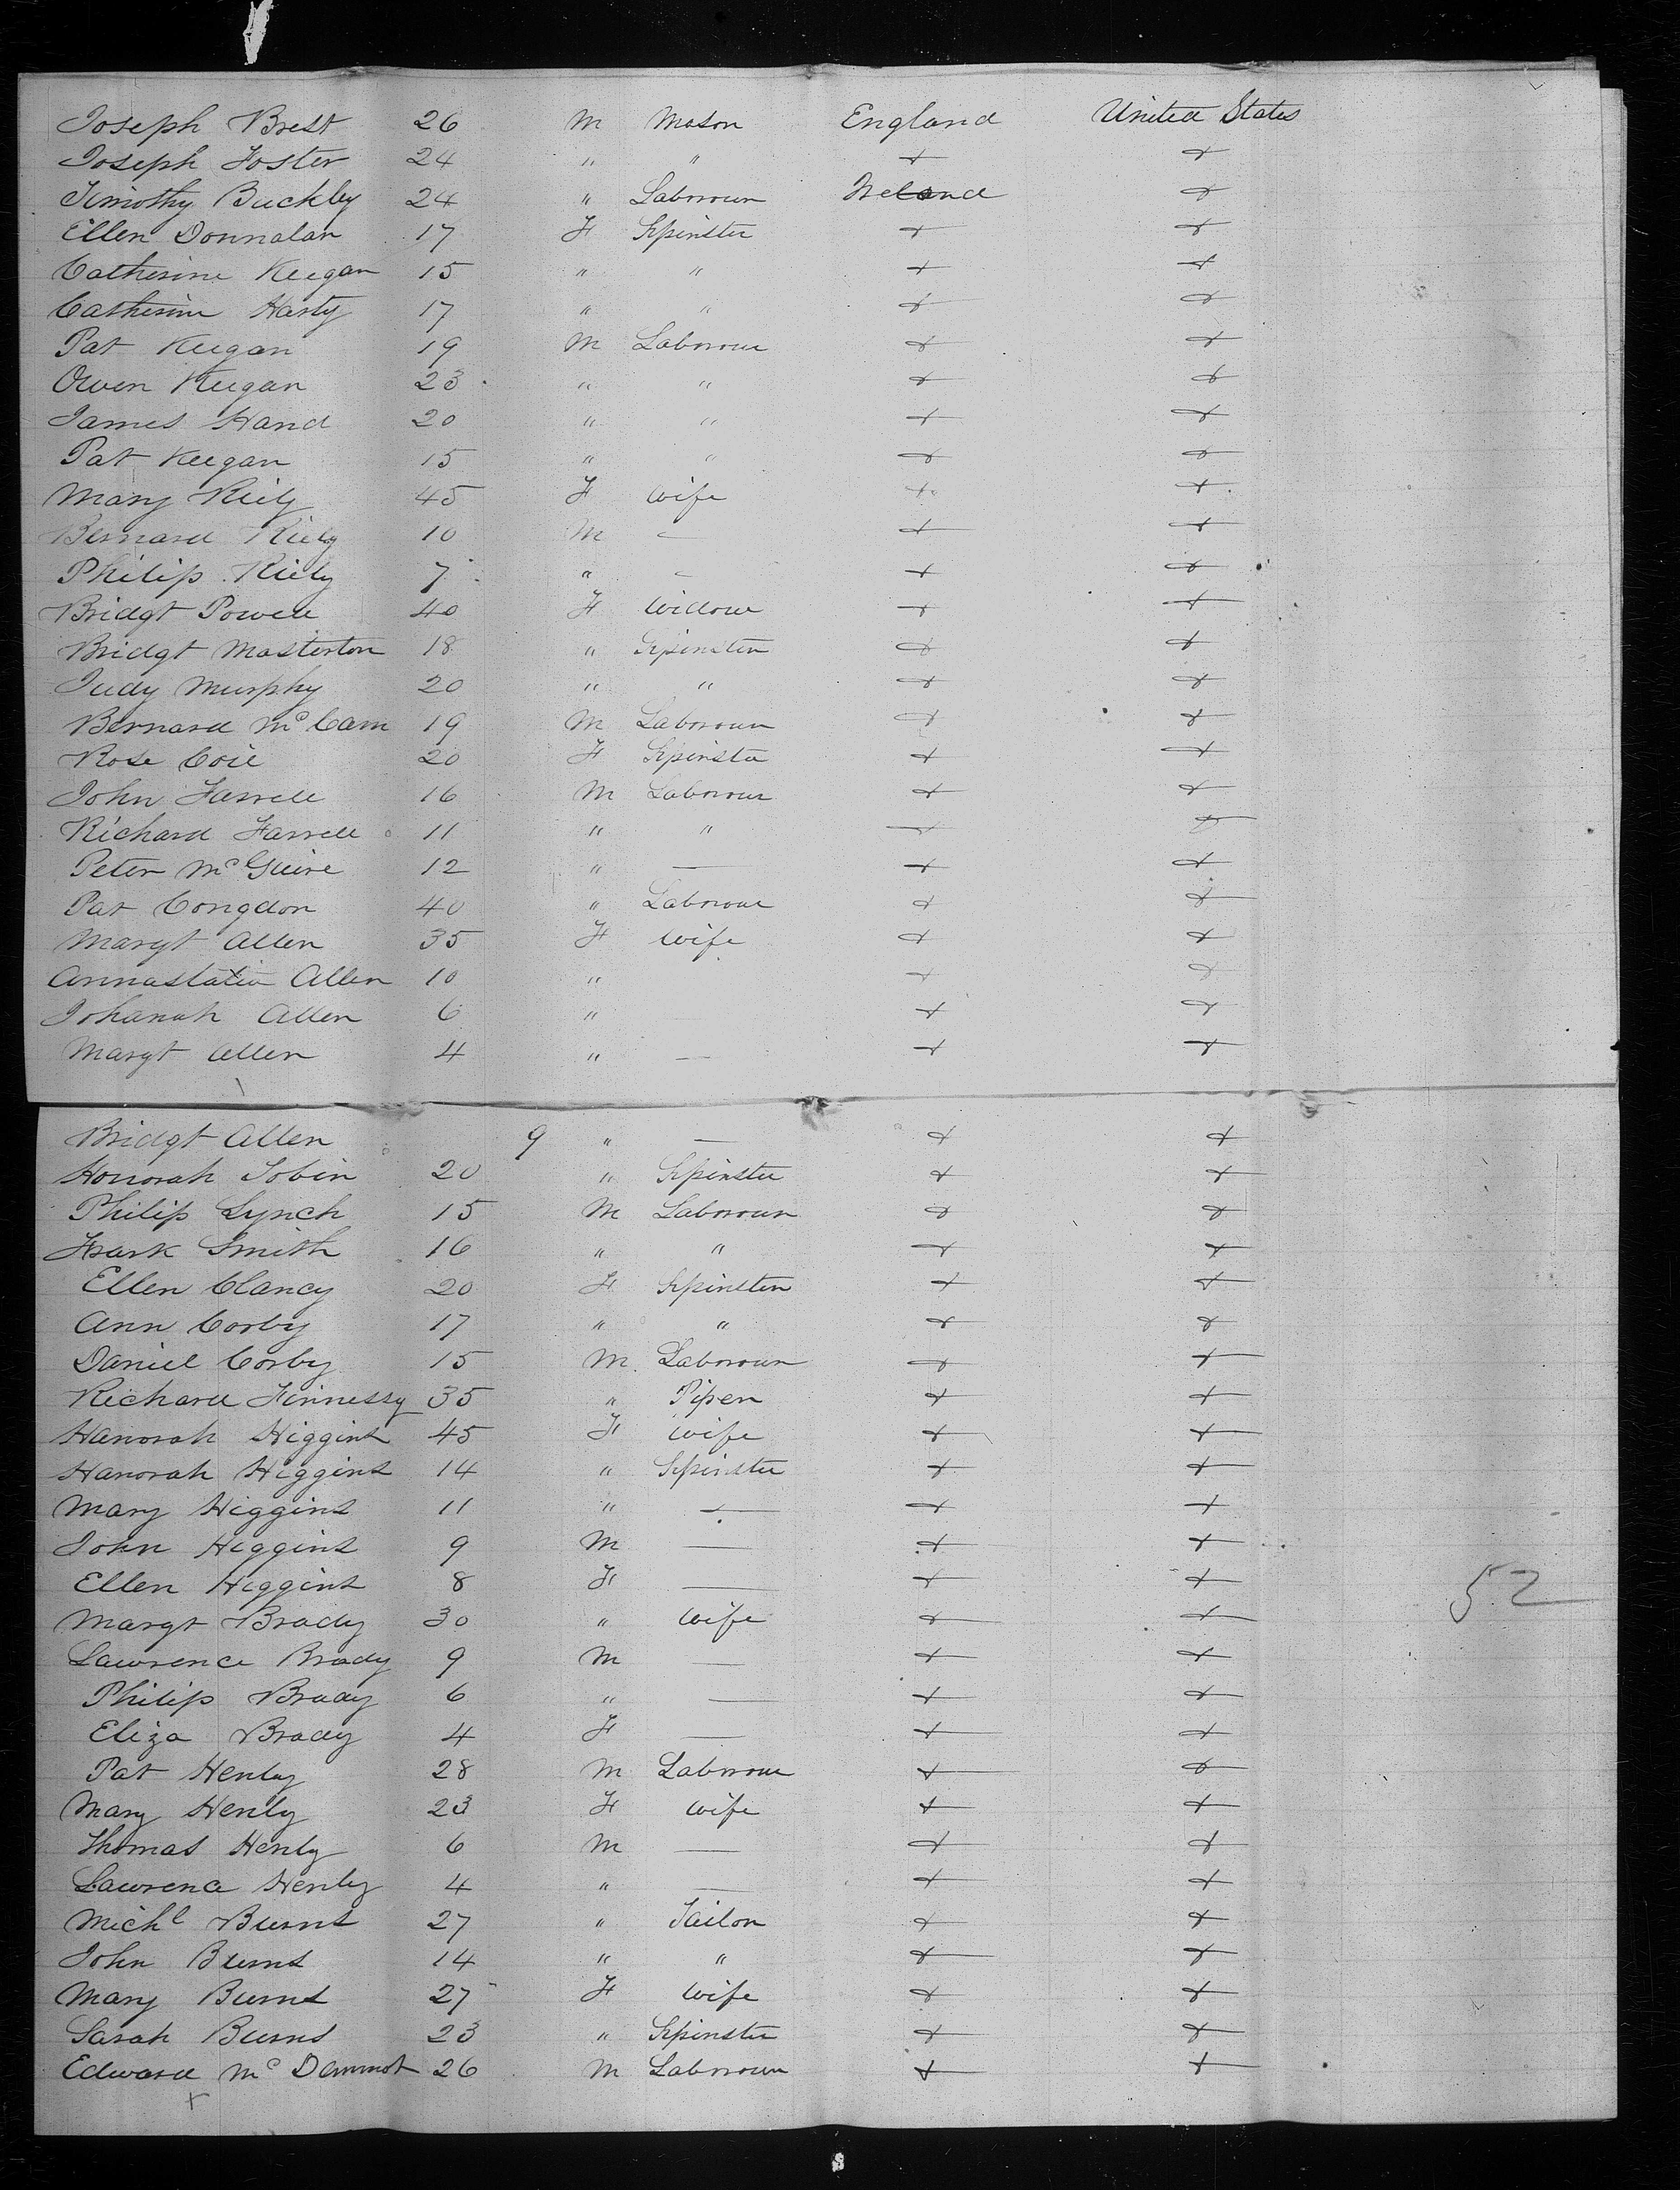 Joseph Brest 26 M Mason England United States
Joseph Foster 24 " " + +
Timothy Buckley 24 " Labrour Ireland +
Ellen Donnalan 17 F Spinster + +
Catherine Keegan 15 " " + +
Catherine Harty 17 " " + +
Pat Keegan 19 M Labrour + +
Owen Keegan 23 " " + +
James Hand 20 " " + +
Pat Keegan 15 " " + +
Mary Riely 45 F Wife + +
Bernard Riely 10 M — + +
Philip Riely 7 " — + +
Bridgt Powell 40 F Widow + +
Bridgt Masterton 18 " Spinster + +
Judy Murphy 20 " " + +
Bernard Mc Cam 19 M Labrour + +
Rose Coil 20 F Spinster + +
John Farrell 16 M Labrour + +
Richard Farrell 11 " " + +
Peter McGuire 12 " — + +
Pat Congdon 40 " Labrour + +
Margt Allen 35 F Wife + +
Annastatia Allen 10 " + +
Johanah Allen 6 " + +
Margt Allen 4 " — + +
Bridgt Allen 9 " — + +
Honorah Tobin 20 " Spinster + +
Philip Lynch 15 M Labrour + +
Frank Smith 16 " " + +
Ellen Clancy 20 F Spinster + +
Ann Corby 17 " " + +
Daniel Corby 15 M Labrour + +
Richard Finnessy 35 " Piper + +
Hanorah Higgins 45 F Wife + +
Hanorah Higgins 14 " Spinster + +
Mary Higgins 11 " — + +
John Higgins 9 M — + +
Ellen Higgins 8 F — + + 52
Margt Brady 30 " Wife + +
Lawrence Brady 9 M — + +
Philip Brady 6 " — + +
Eliza Brady 4 F — + +
Pat Henly 28 M Labrour + +
Mary Henly 23 F Wife + +
Thomas Henly 6 M — + +
Lawrence Henly 4 " — + +
Michl Burns 27 " Tailor + +
John Burns 14 " " + +
Mary Burns 27 F Wife + +
Sarah Burns 23 " Spinster + +
Edward Mc Dammot 26 M Labrour + +
x